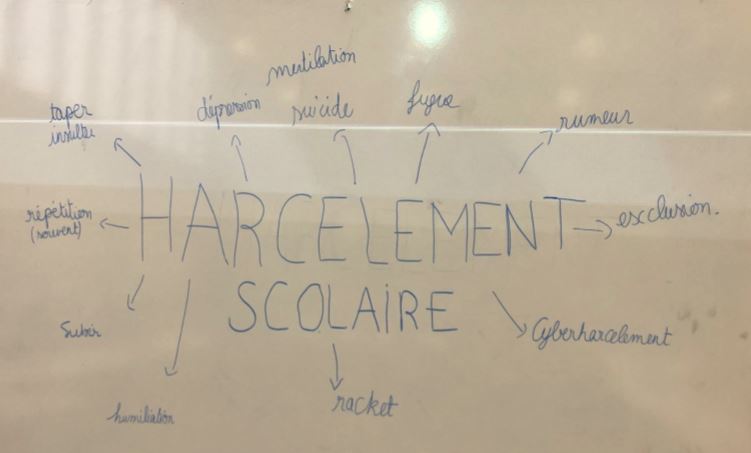 mutilation
taper
insulter
dépression
suicide
fugue
rumeur
HARCELEMENT
répétition
(souvent)
exclusion.
SCOLAIRE
Subir
Cyberharcelement
humiliation
racket